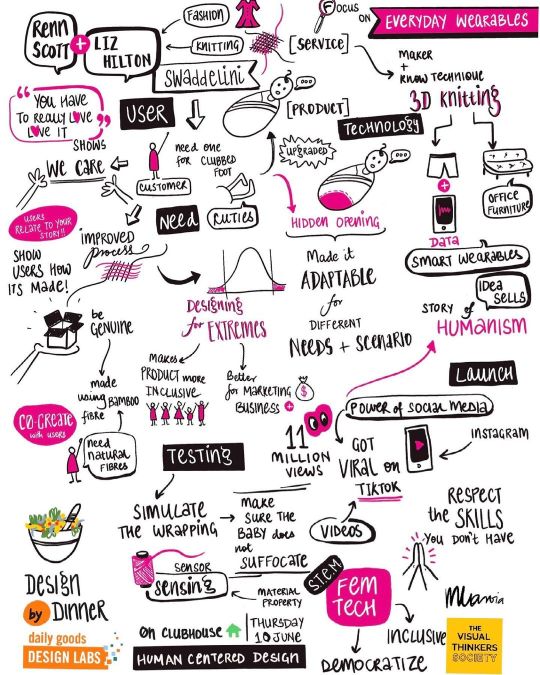 RENN
SCOTT
+
LIZ
HILTON
FASHION
KNITTING
SWADDELINI
[SERVICE]
FOCUS
ON
EVERYDAY WEARABLES
MAKER
+
KNOW TECHNIQUE
3D KNITTING
"YOU HAVE
TO REALLY LOVE
LOVE IT"
SHOWS
WE CARE
USER
need one
for clubbed
foot
CUSTOMER
[PRODUCT]
TECHNOLOGY
UPGRADED
HIDDEN OPENING
+
DATA
OFFICE
FURNITURE
SMART WEARABLES
IDEA
SELLS
STORY of
HUMANISM
USERS
RELATE TO YOUR
STORY!!
NEED
CUTIES
SHOW
USERS HOW
ITS MADE!
IMPROVED
process
Designing
for EXTREMES
MADE it
ADAPTABLE
for
DIFFERENT
NEEDS + SCENARIO
be
GENUINE
MAKES
PRODUCT MORE
INCLUSIVE
Better
for MARKETING
BUSINESS +
$
LAUNCH
POWER of SOCIAL MEDIA
made
using BAMBOO
FIBRE
CO-CREATE
with users
need
NATURAL
FIBRES
TESTING
11
MILLION
VIEWS
GOT
VIRAL on
TIKTOK
INSTAGRAM
VIDEOS
SIMULATE
THE WRAPPING
MAKE
SURE THE
BABY does
not
SUFFOCATE
RESPECT
the SKILLS
YOU DON'T HAVE
SENSOR
sensing
MATERIAL
PROPERTY
S.T.E.M
FEM
TECH
INCLUSIVE
DEMOCRATIZE
DESIGN
by DINNER
daily goods
DESIGN LABS
ON CLUBHOUSE
THURSDAY
10 JUNE
HUMAN CENTERED DESIGN
THE
VISUAL
THINKERS
SOCIETY